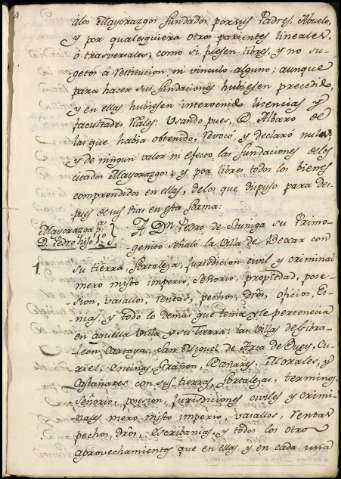 alos Mayorazgos fundados por sus Padres, Abuelos,
y por qualesquiera otros parientes lineales
ó trasversales, como si fuesen libres, y no su-
getos á restitucion ni vinculo alguno; aunque
para hacer sus fundaciones hubiesen precedido,
y en ellas hubiesen intervenido licencias y
facultades Rales. Usando pues, D. Albaro de
las que habia obtenido, revocó, y declaró nulas
y de ningun valor ni efecto las fundaciones de los
citados Mayorazgos, y por libres todos los bienes
comprendidos en ellos, de los que dispuso para des-
pues de sus dias en esta forma:
Mayorazgo pa
D. Pedro hijo 1º
A Dn. Pedro de Stuñiga su Primo-
genito señaló la Villa de Bexar con
1
su tierra, fortaleza, Jurisdicion civil y criminal
mero misto imperio, Señorio, propiedad, pose-
sion, vasallos, rentas, pechos, dros, oficios, Es-
nias, y todo lo demas que tenia y le pertenecia
en aquella Villa y su tierra: las Villas de
Traspinedo de Cuey, Cu-
riel, Grañon, Bañares,
Castañares con sus tierras, fortalezas, terminos,
Señorio, posesion, Jurisdiciones civiles y crimi-
nales mero misto imperio, vasallos, rentas
pechos, dros, escribanias, y todos los otros
aprovechamientos que en ellas y en cada una